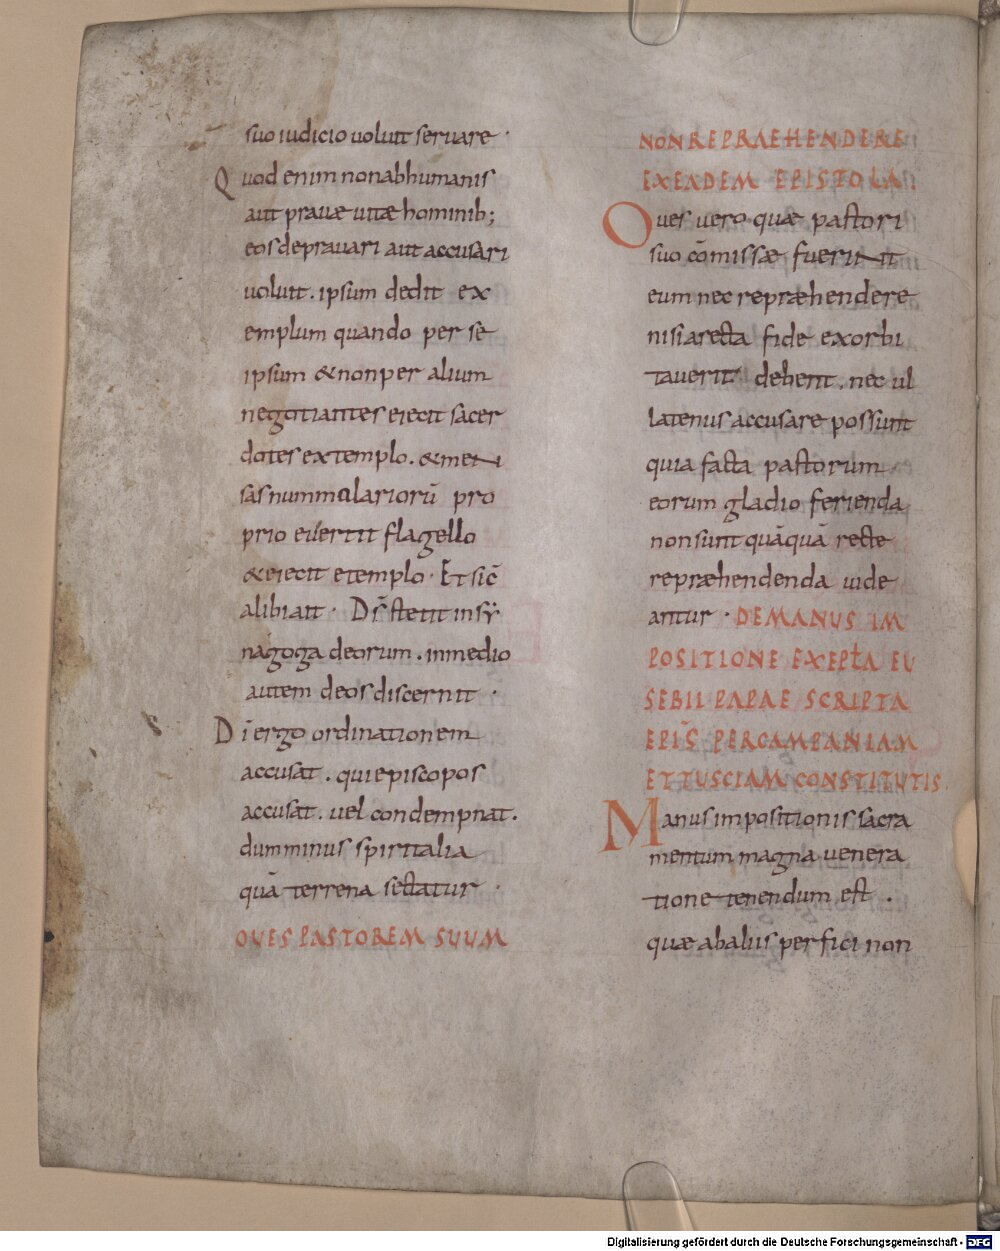 suo iudicio uoluit seruare ·
Quod enim non ab humanis
aut prauæ uitæ hominib;
eos deprauari aut accusari
uoluit. ipsum dedit ex
emplum quando per se
ipsum & non per alium
negotiantes eiecit sacer
dotes ex templo. & men
sas nummulariorū pro
prio euertit flagello
& eiecit e templo · Et sic̄
alibi ait · Dī stetit in sy
nagoga deorum. in medio
autem deos discernit ·
Di ergo ordinationem
accusat. qui episcopos
accusat. uel condempnat.
dum minus spiritalia
quā terrena sectatur ·
OUES PASTOREM SUUM
NON REPRAEHENDERE
EX EADEM EPISTOLA
Oues uero quæ pastori
suo cōmissæ fuerint
eum nec repræhendere
nisi a recta fide exorbi
tauerit debent. nec ul
latenus accusare possunt
quia facta pastorum
eorum gladio ferienda
non sunt quāquā recte
repræhendenda uide
antur · DE MANUS IM
POSITIONE EX EPĪTA EU
SEBII PAPAE SCRIPTA
EPIS̄ PER CAMPANIAM
ET TUSCIAM CONSTITUTIS
Manus impositionis sacra
mentum magna uenera
tione tenendum est .
quæ ab aliis perfici non
Digitalisierung gefördert durch die Deutsche Forschungsgemeinschaft - DFG